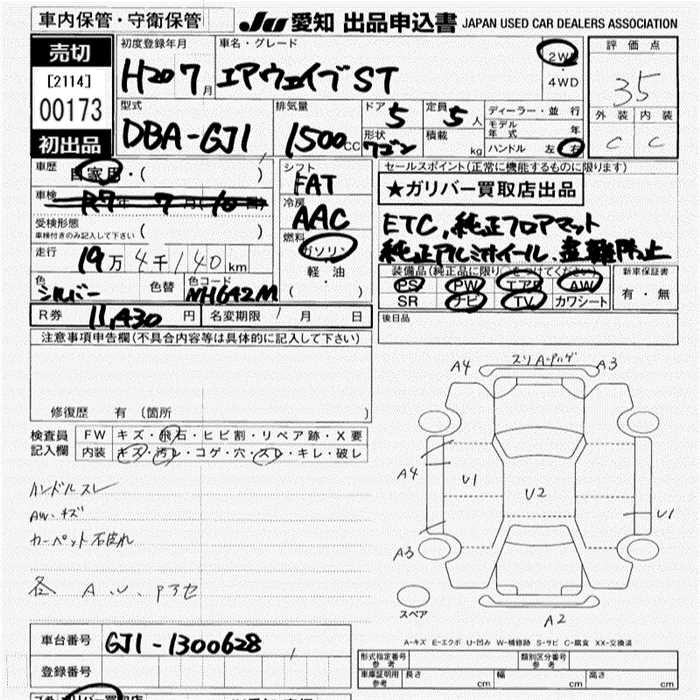 車内保管・守衛保管
JU 愛知 出品申込書 JAPAN USED CAR DEALERS ASSOCIATION
売切
[2114]
00173
初出品
初度登録年月
H20 7月
車名・グレード
エアウェイブ ST
2WD
・
4WD
評価点
3.5
外装 内装
C C
型式
DBA-GJ1
排気量
1500cc
ドア 5
形状 ワゴン
定員 5人
積載 kg
ディーラー・並行
モデル年式 年
ハンドル 左 右
車歴 自家用・( )
車検 R7年 7月(10日)
受検形態 ( )
車検付きのみ記入して下さい
走行 19万4千140km
色 シルバー 色替 色コード NH642M
シフト
FAT
冷房
AAC
燃料
ガソリン
軽油
( )
セールスポイント(正常に機能するものに限ります)
★ガリバー買取店出品
ETC,純正フロアマット
純正アルミホイール、盗難防止
装備品(純正品に限り○をつけてください)
PS PW エアB AW
SR ナビ TV カワシート
新車保証書
有・無
R券 11,430円 名変期限 / 月 日
後日品
注意事項申告欄(不具合内容等は具体的に記入して下さい)
修復歴 有 (箇所 )
検査員記入欄
FW キズ・飛石・ヒビ割・リペア跡・X要
内装 キズ・汚レ・コゲ・穴・スレ・キレ・破レ
ハンドルスレ
AW・キズ
カーペット汚れ
各 A.U.
A4 A3
A4 U1 U2 U1
A3
スペア
A2
A-キズ E-エクボ U-凹み W-補修跡 S-サビ C-腐食 XX-交換済
車台番号 GJ1-1300628
登録番号
型式指定番号 参考
類別区分番号 参考
車庫証明用 参考 長さ cm 幅 cm 高さ cm
ガリバー買取店